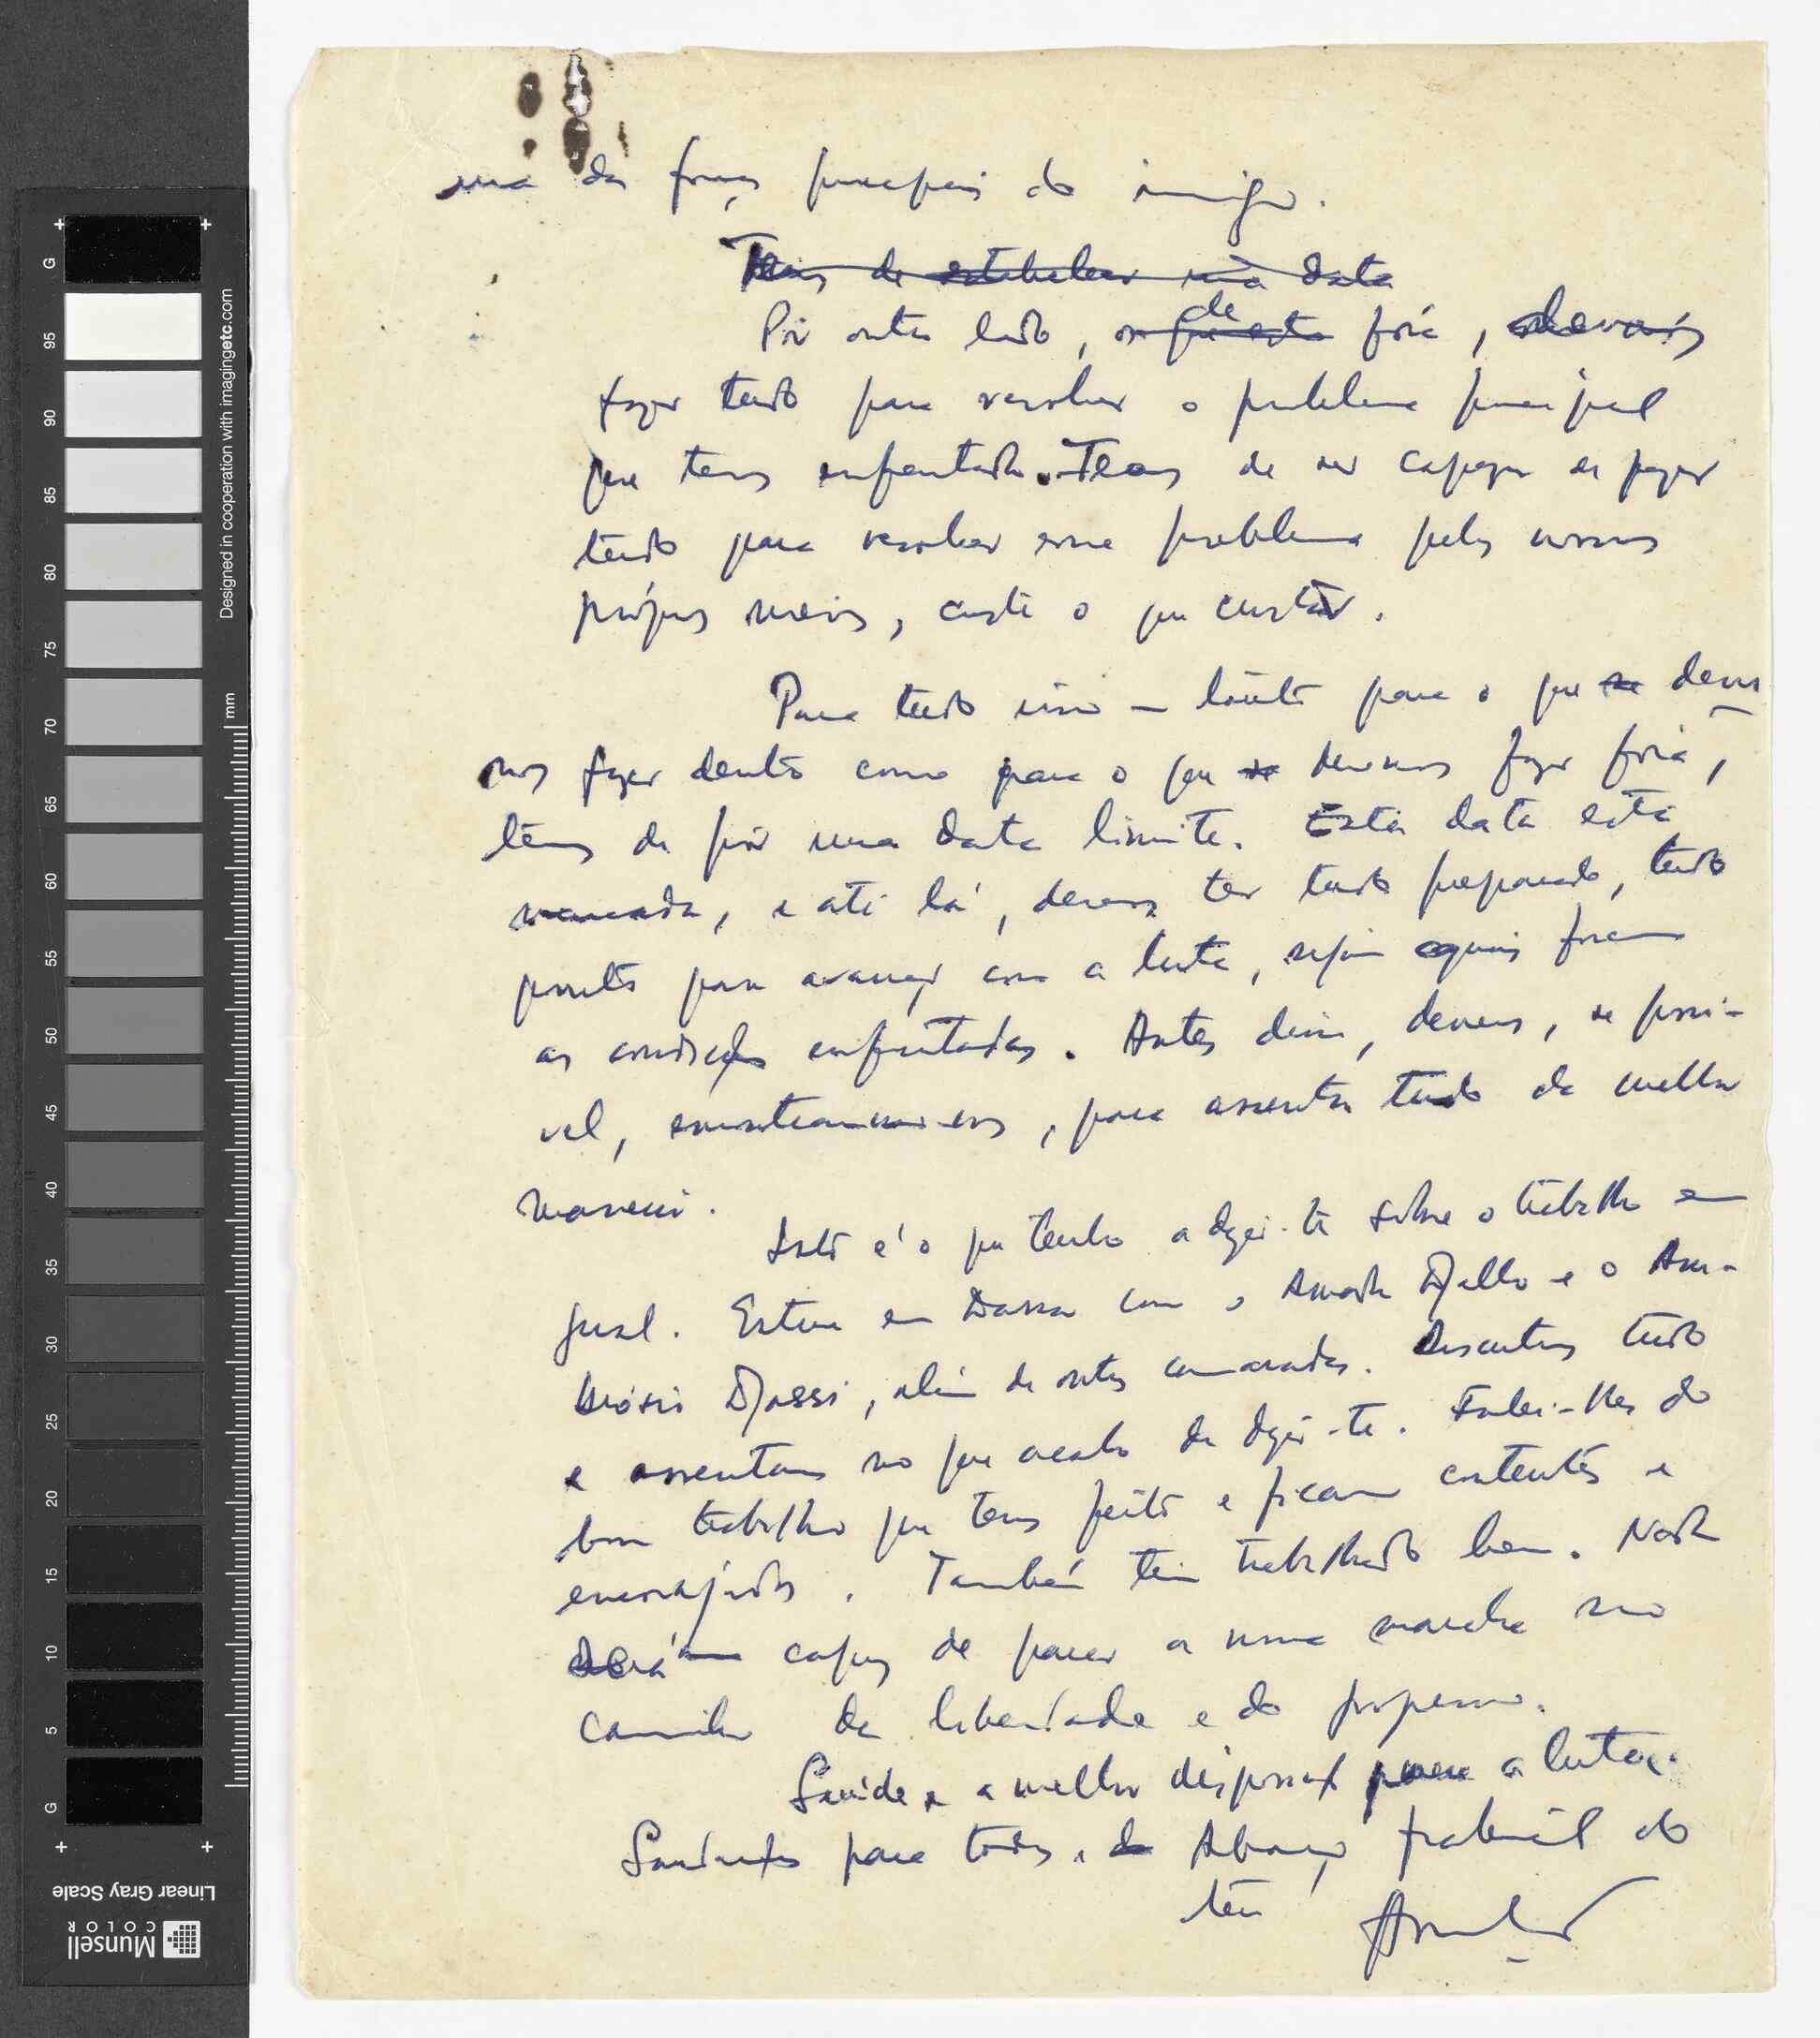 uma das forças principais do inimigo.
Temos de estabelecer uma data
Por outro lado, de fora, devemos
fazer tudo para resolver o problema principal
que temos enfrentado. Temos de ser capazes de fazer
tudo para resolver esse problema pelos nossos
próprios meios, custe o que custar.
Para tudo isso — tanto para o que se deve-
mos fazer dentro como para o que se devemos fazer fora,
temos de pôr uma data limite. Esta data está
marcada, e até lá, devemos ter tudo preparado, tudo
pronto para avançar com a luta, sejam quais forem
as condições enfrentadas. Antes disso, devemos, se possí-
vel, encontrarmo-nos, para assentar tudo da melhor
maneira.
Isto é o que tenho a dizer-te sobre o trabalho em
geral. Estive em com o Djallo e o Am-
brósio Djassi, além de outros camaradas. Discutimos tudo
e assentamos no que acabo de dizer-te. Falei-lhes do
bom trabalho que tens feito e ficaram contentes e
encorajados. Também têm trabalhado bem. Nada
será capaz de parar a nossa marcha no
caminho da liberdade e do progresso.
Saúde e a melhor disposição para a luta.
Saudações para todos. Abraço fraternal do
teu